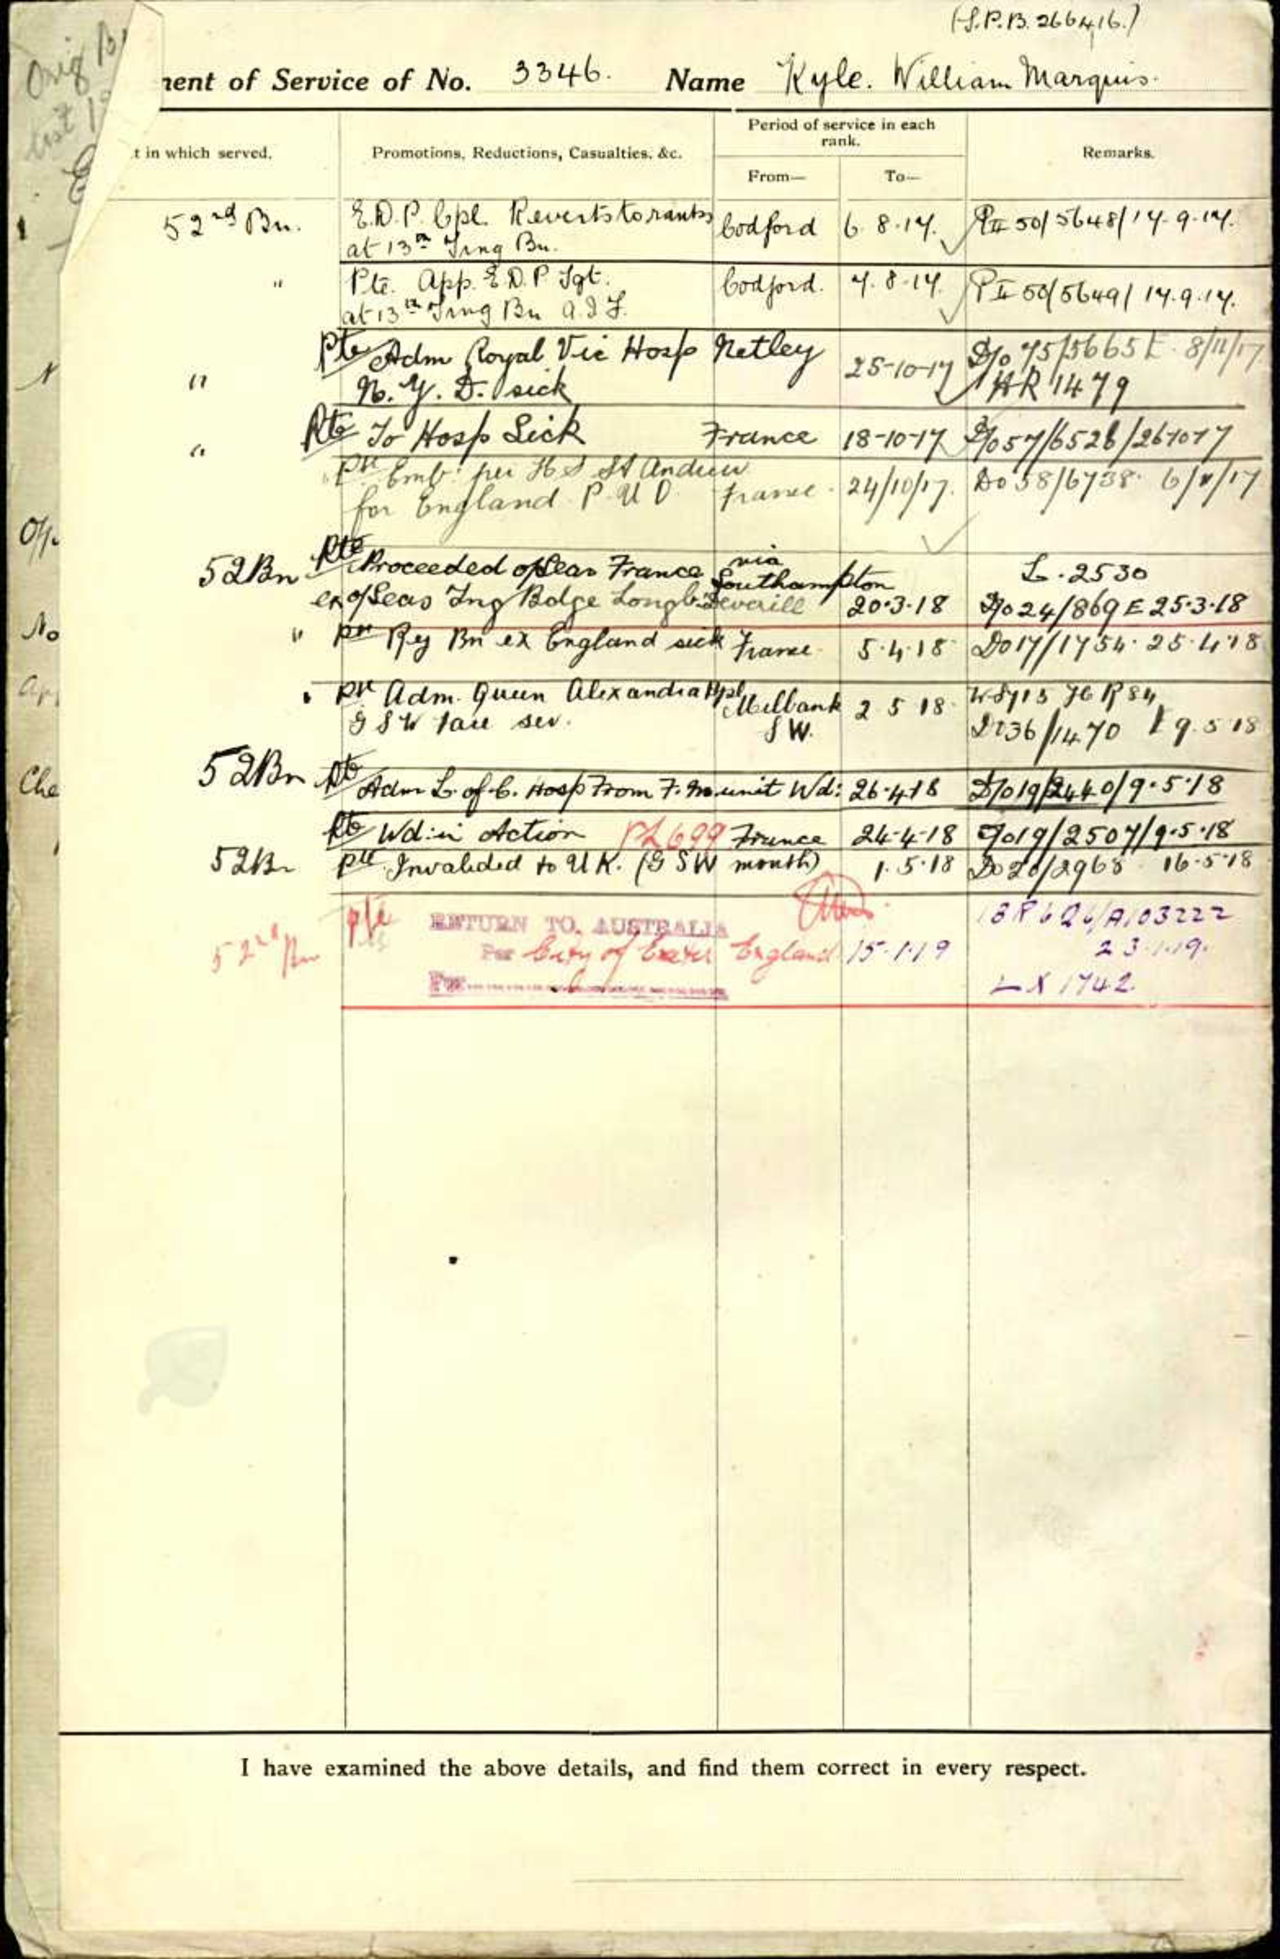 (S.P.B. 266416.)
Orig
list
nent of Service of No. 3346. Name Kyle. William Marquis.
t in which served. Promotions, Reductions, Casualties, &c. Period of service in each rank. Remarks.
From— To—
52nd Bn. E.D.P. Cpl. Reverts to ranks Codford 6.8.17. P II 50/5648/17.9.17.
at 13th Trng Bn.
" Pte. App. E.D.P. Sgt. Codford. 7.8.17. P II 50/5649/17.9.17.
at 13th Trng Bn A.I.F.
" Pte Adm Royal Vic Hosp Netley 25-10-17 D/o 75/5665 E. 8/11/17
N.Y.D. sick HR 1479
" Pte To Hosp Sick France 18-10-17 D/o 57/6526/26-10-17
Pte Emb: per H S St Andrew France. 24/10/17. Do 58/6738. 6/11/17
for England P U O
52Bn Pte Proceeded o/seas France via Southampton L.2530
ex o/seas Tng Bdge Longb Deverill 20.3.18 D/o 24/869 E 25.3.18
" Pte Rej Bn ex England sick France. 5.4.18 Do 17/1754. 25.4.18
Pte Adm. Queen Alexandra Hpl Millbank S W. 2 5 18 HR 84
G S W face sev. Do 36/1470 E 9.5.18
52Bn Pte Adm L. of C. Hosp from F. M unit Wd: 26.4.18 D/o 19/2440/9.5.18
Pte Wd: in Action PL699 France 24-4-18 D/o 19/2507/9.5.18
52Bn Pte Invalided to U K. (G S W mouth) 1.5.18 Do 20/2968 16.5.18
52nd Bn Pte RETURN TO AUSTRALIA
Per City of Exeter England 15.1.19 A103222
23.1.19.
For LX 1742.
Off.
No
Che
I have examined the above details, and find them correct in every respect.